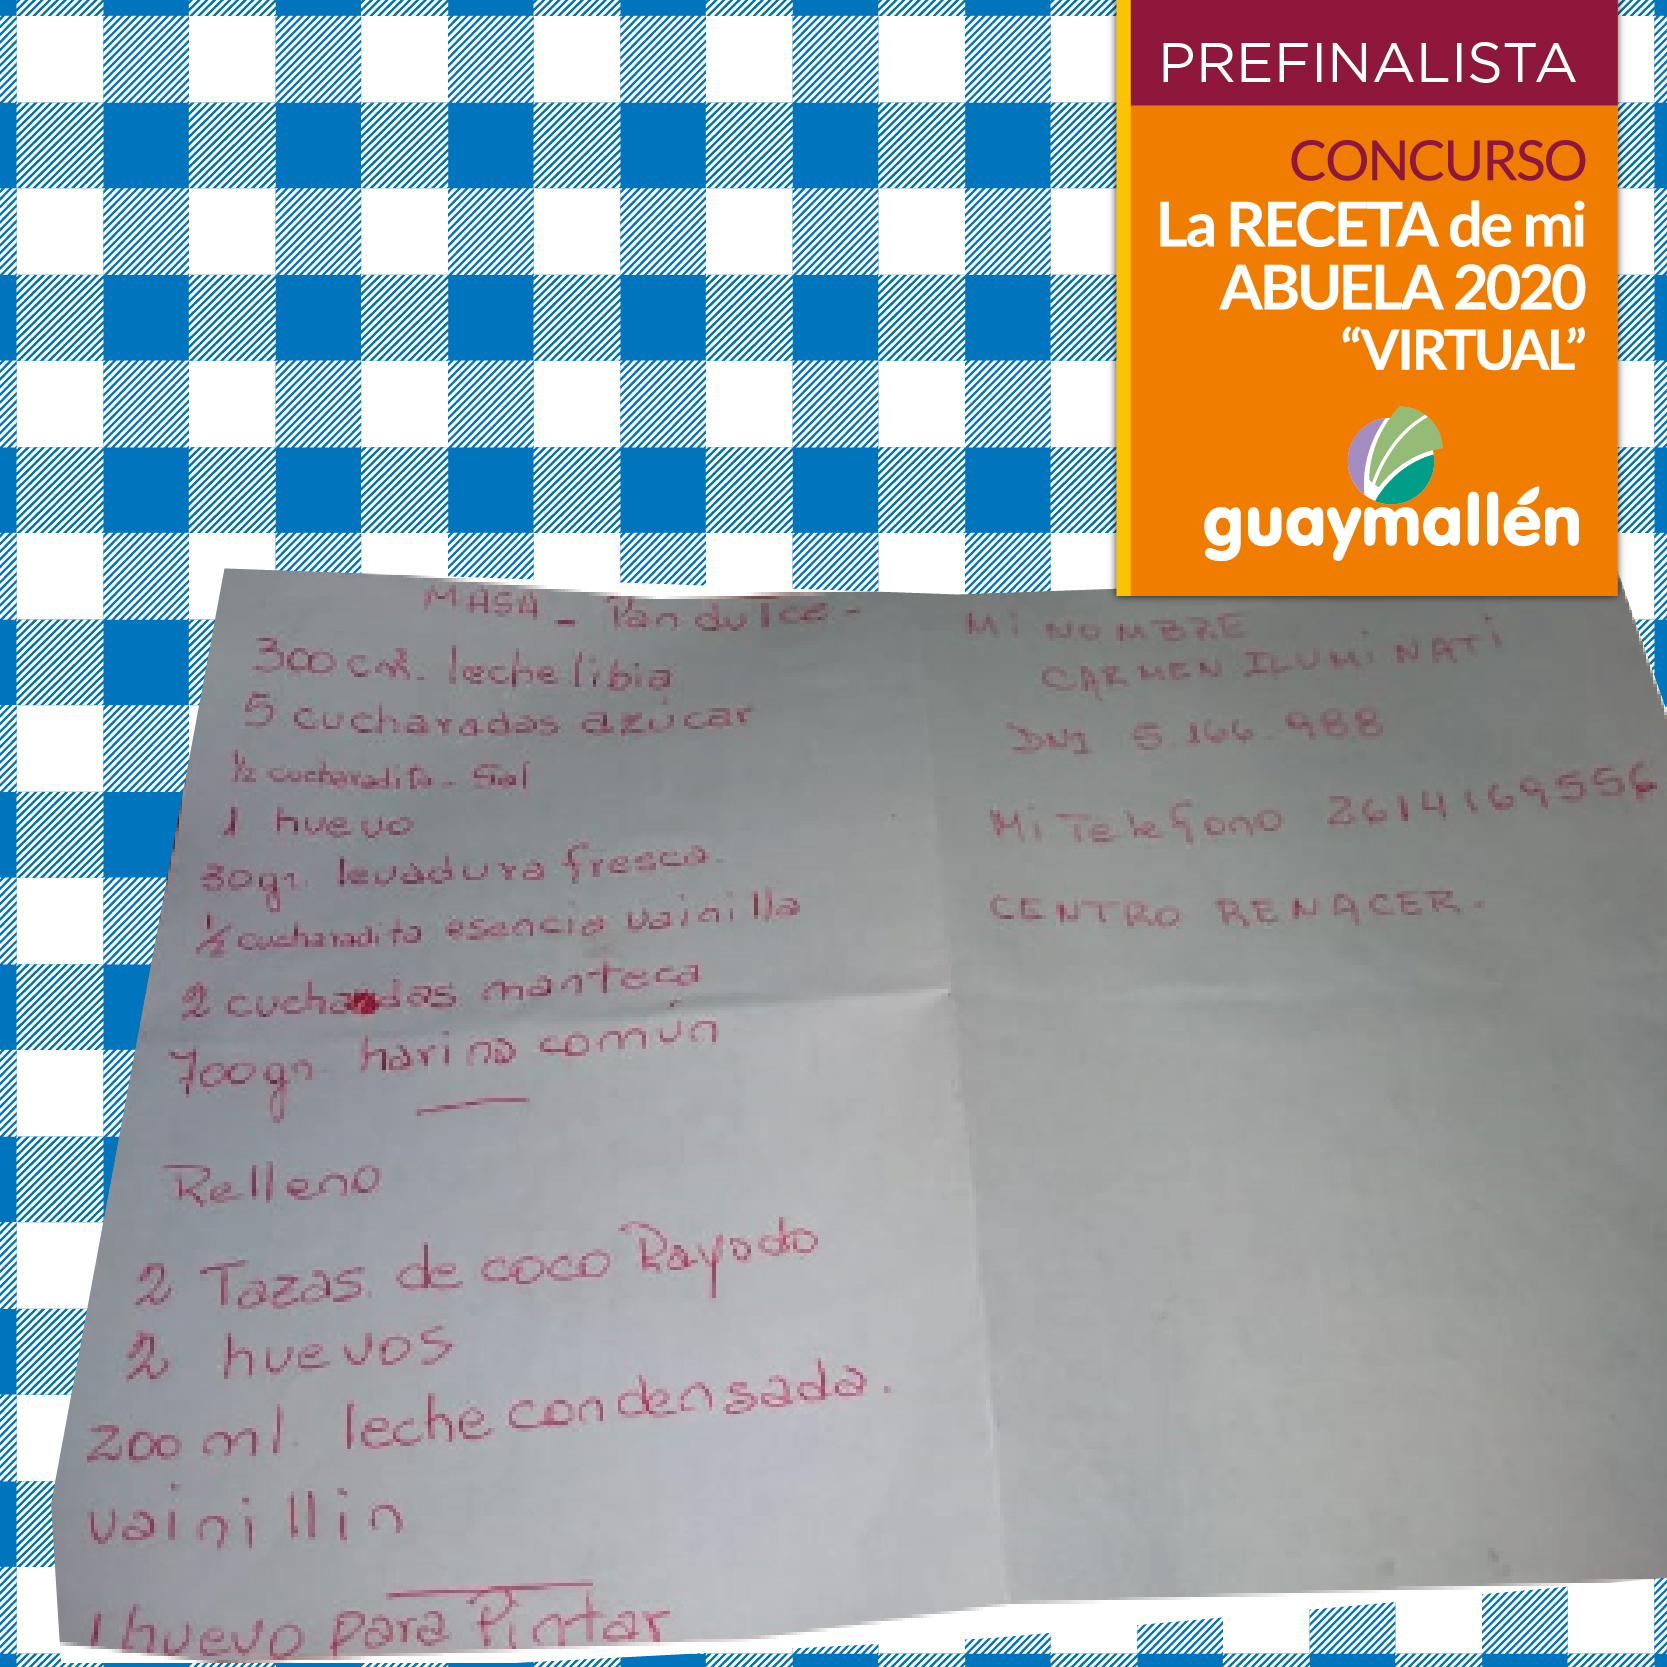 PREFINALISTA
CONCURSO
La RECETA de mi
ABUELA 2020
“VIRTUAL”
guaymallén
MASA - Pan dulce -
300 cm. leche libia
5 cucharadas azúcar
1/2 cucharadita - Sal
1 huevo
30gr. levadura fresca.
1/2 cucharadita esencia vainilla
2 cuchadas manteca
700gr. harina común
Relleno
2 Tazas de coco Rayado
2 huevos
200 ml. leche condensada.
vainillin
1 huevo para Pintar
Mi NOMBRE
CARMEN ILUMiNATi
DNI 5.166.988
Mi Telefono 2614169556
CENTRO RENACER.